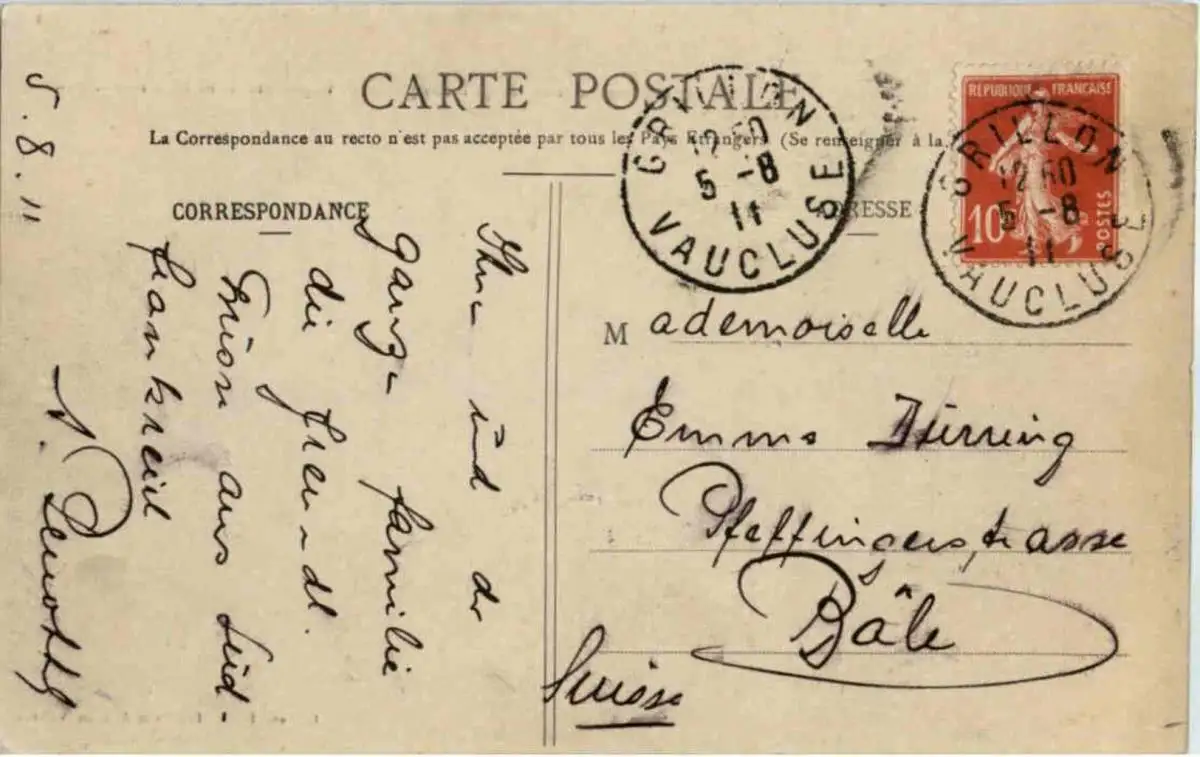 CARTE POSTALE
La Correspondance au recto n'est pas acceptée par tous les Pays Etrangers (Se renseigner à la
CORRESPONDANCE
ADRESSE
GRILLON
12 50
5 -8
11
VAUCLUSE
RÉPUBLIQUE FRANÇAISE
10
POSTES
GRILLON
12 50
5 -8
11
VAUCLUSE
5.8.11
und der
ganze Familie
die freundl.
Grüsse aus Süd-
frankreich
Mademoiselle
Emma Dürring
Pfeffingerstrasse
Bâle
Suisse